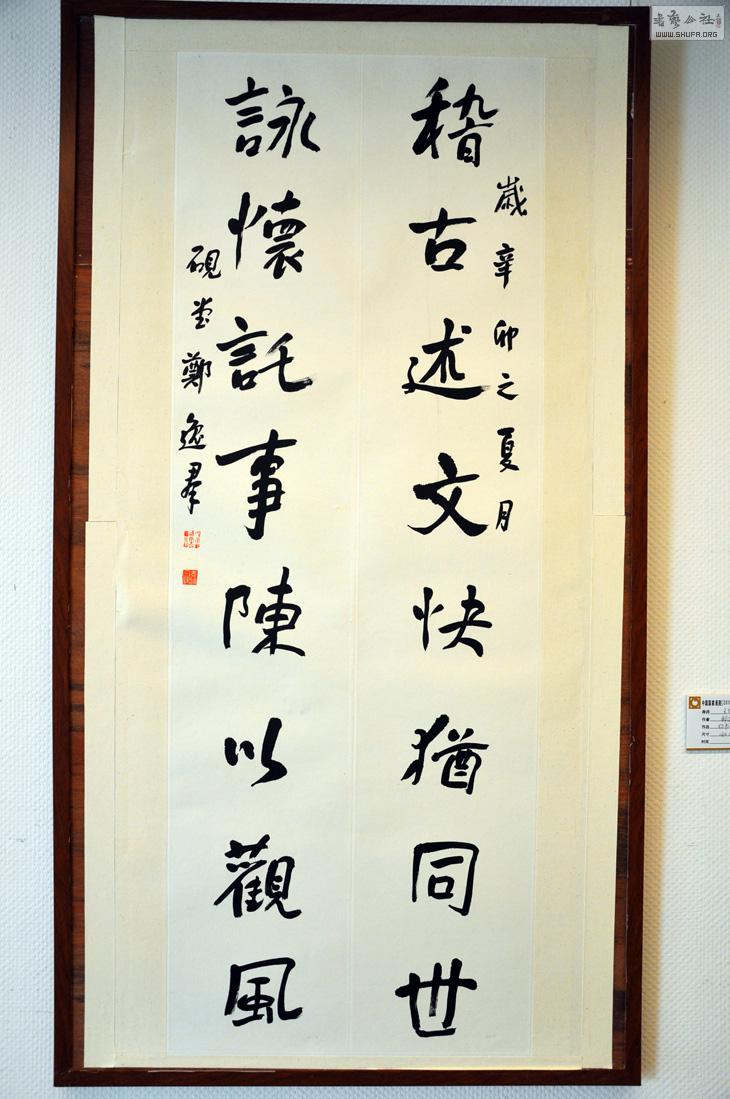 稽古述文快猶同世
歲辛卯之夏月
詠懷託事陳以觀風
硯堂鄭逸羣
書藝公社
WWW.SHUFA.ORG